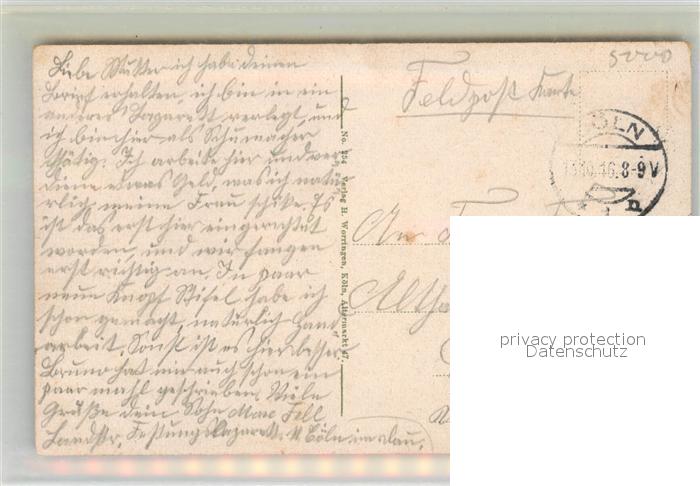 Liebe Mutter ich habe deinen
Brief erhalten, ich bin in ein
anderes Lazarett verlegt, und
ich bin hier als Schumacher
thätig. Ich arbeite hier und ver
diene etwas Geld, was ich natü
rlich, meine Frau schike. Es
ist das erst hier eingerichtet
worden, und wir fangen
erst richtig an. In paar
neue Knopf Stifel habe ich
schon gemacht, natürlich Hand
arbeit. Sonst ist es hier besser
Bruno hat mir auch schon ein
paar mahl geschrieben. Viele
Grüße dein Sohn Max Fell
Landstr. Festungslazarett Cöln
No. 254 Verlag H. Worringen, Köln, Altermarkt 47.
5000
Feldpost Karte
CÖLN
10.16.8-9V
An
privacy protection
Datenschutz